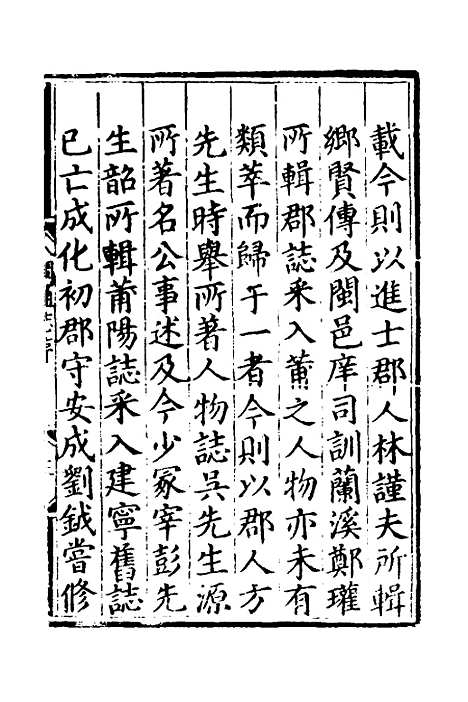 載今則以進士郡人林謹夫所輯
鄉賢傳及閩邑庠司訓蘭溪鄭瓘
所輯郡誌釆入莆之人物亦未有
類萃而歸于一者今則以郡人方
先生時舉所著人物誌吳先生源
所著名公事述及今少冢宰彭先
生韶所輯莆陽誌釆入建寧舊誌
已亡成化初郡守安成劉鉞嘗修